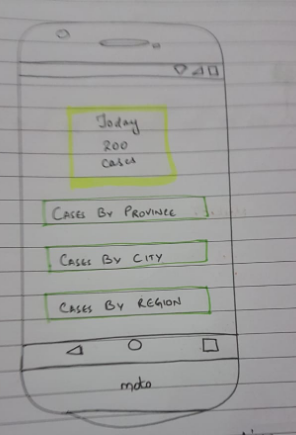 Today
200
cases
CASES BY PROVINCE
CASES BY CITY
CASES BY REGION
moto